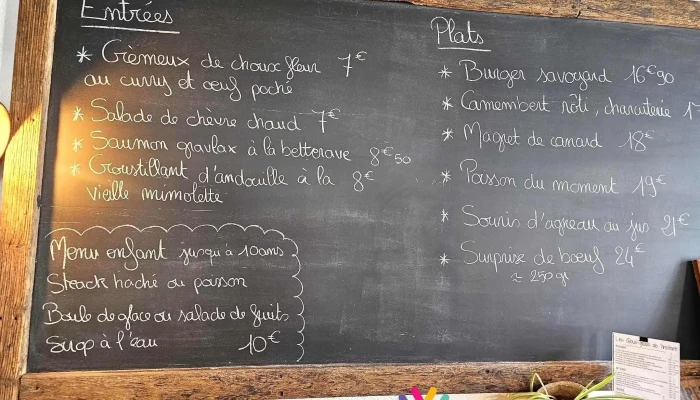 Entrées
* Crèmeux de choux fleur 7€
au curry et œuf poché
* Salade de chèvre chaud 7€
* Saumon gravlax à la betterave 8€50
* Croustillant d'andouille à la 8€
vieille mimolette
Menu enfant jusqu'à 10ans
Steack haché ou poisson
Boule de glace ou salade de fruits
Sirop à l'eau 10€
Plats
* Burger savoyard 16€90
* Camembert rôti, charcuterie 17
* Magret de canard 18€
* Poisson du moment 19€
* Souris d'agneau au jus 21€
* Surprise de bœuf 24€
≈ 250gr